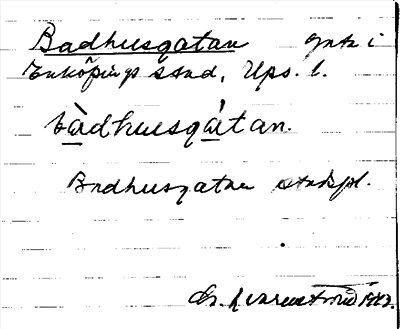 Badhusgatan gata i
Enköpings stad, Ups. l.
bàdhusgátan.
Badhusgatan stadspl.